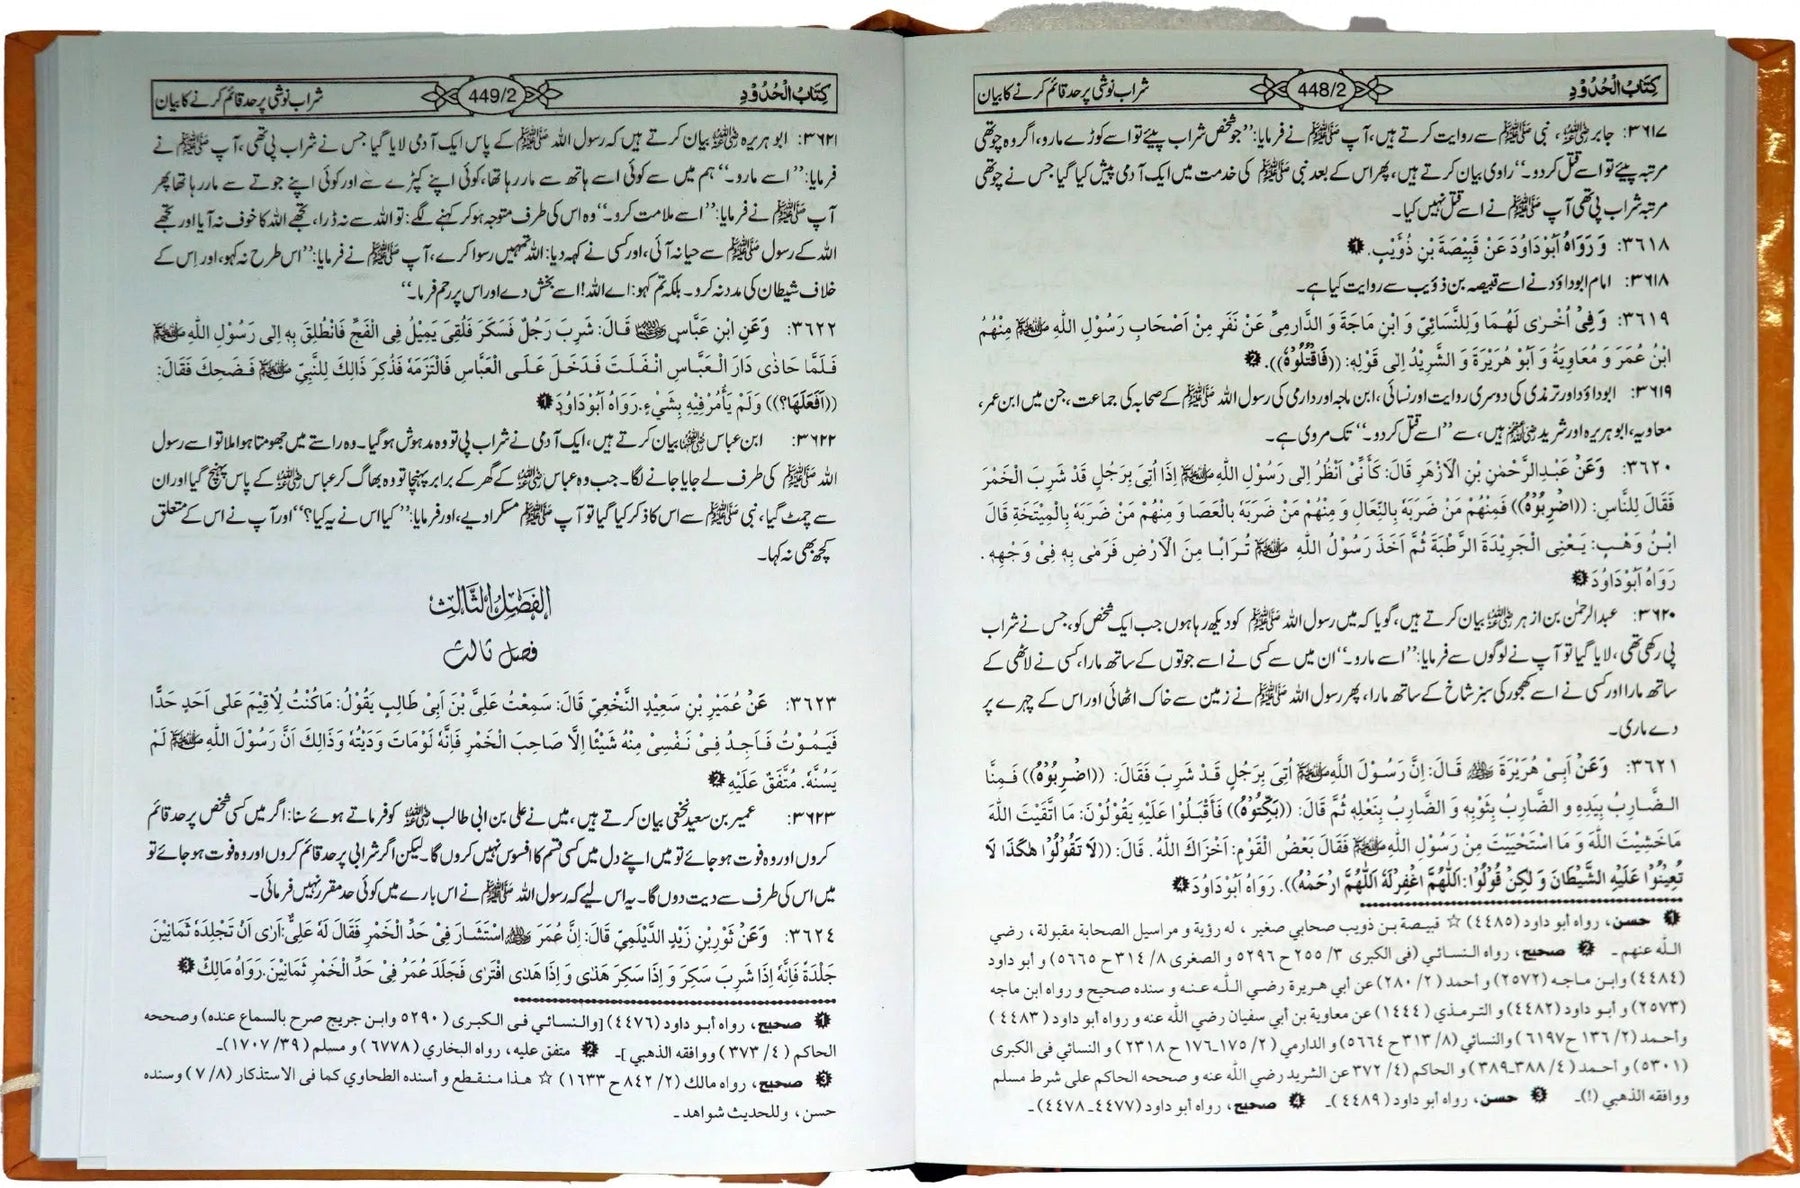 کِتَابُ الْحُدُوْدِ 448/2 شراب نوشی پر حد قائم کرنے کا بیان
۳۶۱۷: جابر ، نبی ﷺ سے روایت کرتے ہیں، آپ ﷺ نے فرمایا: ’’جو شخص شراب پیئے تو اسے کوڑے مارو، اگر وہ چوتھی
مرتبہ پیئے تو اسے قتل کر دو۔‘‘ راوی بیان کرتے ہیں، پھر اس کے بعد نبی ﷺ کی خدمت میں ایک آدمی پیش کیا گیا جس نے چوتھی
مرتبہ شراب پی تھی آپ ﷺ نے اسے قتل نہیں کیا۔
۳۶۱۸: وَ رَوَاهُ اَبُوْدَاوُدَ عَنْ قَبِيْصَةَ بْنِ ذُؤَيْبٍ. ❶
۳۶۱۸: امام ابوداؤد نے اسے قبیصہ بن ذؤیب سے روایت کیا ہے۔
۳۶۱۹: وَفِيْ اُخْرٰى لَهُمَا وَلِلنَّسَائِيِّ وَ ابْنِ مَاجَةَ وَ الدَّارِمِيِّ عَنْ نَفَرٍ مِنْ اَصْحَابِ رَسُوْلِ اللهِ ﷺ مِنْهُمُ
ابْنُ عُمَرَ وَ مُعَاوِيَةُ وَ اَبُوْ هُرَيْرَةَ وَ الشَّرِيْدُ اِلٰى قَوْلِهٖ: ((فَاقْتُلُوْهُ)). ❷
۳۶۱۹: ابوداؤد اور ترمذی کی دوسری روایت اور نسائی، ابن ماجہ اور دارمی کی رسول اللہ ﷺ کے صحابہ کی جماعت، جن میں ابن عمر،
معاویہ، ابوہریرہ اور شرید ہیں، سے ’’اسے قتل کر دو۔‘‘ تک مروی ہے۔
۳۶۲۰: وَعَنْ عَبْدِالرَّحْمٰنِ بْنِ الْاَزْهَرِ قَالَ: كَاَنِّيْ اَنْظُرُ اِلٰى رَسُوْلِ اللهِ ﷺ اِذَا اُتِيَ بِرَجُلٍ قَدْ شَرِبَ الْخَمْرَ
فَقَالَ لِلنَّاسِ: ((اضْرِبُوْهُ)) فَمِنْهُمْ مَنْ ضَرَبَهٗ بِالنِّعَالِ وَ مِنْهُمْ مَنْ ضَرَبَهٗ بِالْعَصَا وَ مِنْهُمْ مَنْ ضَرَبَهٗ بِالْمِيْتَخَةِ قَالَ
ابْنُ وَهْبٍ: يَعْنِى الْجَرِيْدَةَ الرَّطْبَةَ ثُمَّ اَخَذَ رَسُوْلُ اللهِ ﷺ تُرَابًا مِنَ الْاَرْضِ فَرَمٰى بِهٖ فِيْ وَجْهِهٖ.
رَوَاهُ اَبُوْدَاوُدَ ❸
۳۶۲۰: عبدالرحمٰن بن ازہر بیان کرتے ہیں، گویا کہ میں رسول اللہ ﷺ کو دیکھ رہا ہوں جب ایک شخص کو، جس نے شراب
پی رکھی تھی، لایا گیا تو آپ نے لوگوں سے فرمایا: ’’اسے مارو۔‘‘ ان میں سے کسی نے اسے جوتوں کے ساتھ مارا، کسی نے لاٹھی کے
ساتھ مارا اور کسی نے اسے کھجور کی سبز شاخ کے ساتھ مارا، پھر رسول اللہ ﷺ نے زمین سے خاک اٹھائی اور اس کے چہرے پر
دے ماری۔
۳۶۲۱: وَعَنْ اَبِيْ هُرَيْرَةَ قَالَ: اِنَّ رَسُوْلَ اللهِ ﷺ اُتِيَ بِرَجُلٍ قَدْ شَرِبَ فَقَالَ: ((اضْرِبُوْهُ)) فَمِنَّا
الضَّارِبُ بِيَدِهٖ وَ الضَّارِبُ بِثَوْبِهٖ وَ الضَّارِبُ بِنَعْلِهٖ ثُمَّ قَالَ: ((بَكِّتُوْهُ)) فَاَقْبَلُوْا عَلَيْهِ يَقُوْلُوْنَ: مَا اتَّقَيْتَ اللهَ
مَاخَشِيْتَ اللهَ وَ مَا اسْتَحْيَيْتَ مِنْ رَسُوْلِ اللهِ ﷺ فَقَالَ بَعْضُ الْقَوْمِ: اَخْزَاكَ اللهُ. قَالَ: ((لَا تَقُوْلُوْا هٰكَذَا لَا
تُعِيْنُوْا عَلَيْهِ الشَّيْطَانَ وَ لٰكِنْ قُوْلُوْا: اَللّٰهُمَّ اغْفِرْلَهٗ اَللّٰهُمَّ ارْحَمْهُ)). رَوَاهُ اَبُوْدَاوُدَ ❹
❶ حسن، رواه أبو داود (٤٤٨٥) ☆ قبيصة بن ذويب صحابي صغير ، له رؤية و مراسيل الصحابة مقبولة ، رضي
الله عنهم ۔ ❷ صحيح، رواه النسائي (في الكبرى ٣/ ٢٥٥ ح ٥٢٩٦ و الصغرى ٨/ ٣١٤ ح ٥٦٦٥) و أبو داود
(٤٤٨٤) وابن ماجه (٢٥٧٢) و أحمد (٢/ ٢٨٠) عن أبي هريرة رضي الله عنه و سنده صحيح و رواه ابن ماجه
(٢٥٧٣) و أبو داود (٤٤٨٢) و الترمذي (١٤٤٤) عن معاوية بن أبي سفيان رضي الله عنه و رواه أبو داود (٤٤٨٣)
وأحمد (٢/ ١٣٦ ح ٦١٩٧) والنسائي (٨/ ٣١٣ ح ٥٦٦٤) و الدارمي (٢/ ١٧٥۔١٧٦ ح ٢٣١٨) و النسائي في الكبرى
(٥٣٠١) و أحمد (٤/ ٣٨٨۔٣٨٩) و الحاكم (٤/ ٣٧٢ عن الشريد رضي الله عنه و صححه الحاكم على شرط مسلم
ووافقه الذهبي (!)۔ ❸ حسن، رواه أبو داود (٤٤٨٩)۔ ❹ صحيح، رواه أبو داود (٤٤٧٧۔٤٤٧٨)۔
کِتَابُ الْحُدُوْدِ 449/2 شراب نوشی پر حد قائم کرنے کا بیان
۳۶۲۱: ابو ہریرہ بیان کرتے ہیں کہ رسول اللہ ﷺ کے پاس ایک آدمی لایا گیا جس نے شراب پی تھی، آپ ﷺ نے
فرمایا: ’’اسے مارو۔‘‘ ہم میں سے کوئی اسے ہاتھ سے مار رہا تھا، کوئی اپنے کپڑے سے اور کوئی اپنے جوتے سے مار رہا تھا پھر
آپ ﷺ نے فرمایا: ’’اسے ملامت کرو۔‘‘ وہ اس کی طرف متوجہ ہو کر کہنے لگے: تو اللہ سے نہ ڈرا، تجھے اللہ کا خوف نہ آیا اور تجھے
اللہ کے رسول ﷺ سے حیا نہ آئی، اور کسی نے کہہ دیا: اللہ تمہیں رسوا کرے، آپ ﷺ نے فرمایا: ’’اس طرح نہ کہو، اور اس کے
خلاف شیطان کی مدد نہ کرو۔ بلکہ تم کہو: اے اللہ! اسے بخش دے اور اس پر رحم فرما۔‘‘
۳۶۲۲: وَعَنِ ابْنِ عَبَّاسٍ قَالَ: شَرِبَ رَجُلٌ فَسَكَرَ فَلُقِيَ يَمِيْلُ فِي الْفَجِّ فَانْطُلِقَ بِهٖ اِلٰى رَسُوْلِ اللهِ ﷺ
فَلَمَّا حَاذٰى دَارَ الْعَبَّاسِ انْفَلَتَ فَدَخَلَ عَلَى الْعَبَّاسِ فَالْتَزَمَهٗ فَذُكِرَ ذَالِكَ لِلنَّبِيِّ ﷺ فَضَحِكَ فَقَالَ:
((اَفَعَلَهَا؟)) وَلَمْ يَاْمُرْ فِيْهِ بِشَيْءٍ. رَوَاهُ اَبُوْدَاوُدَ ❶
۳۶۲۲: ابن عباس بیان کرتے ہیں، ایک آدمی نے شراب پی تو وہ مدہوش ہو گیا۔ وہ راستے میں جھومتا ہوا ملا تو اسے رسول
اللہ ﷺ کی طرف لے جایا جانے لگا۔ جب وہ عباس کے گھر کے برابر پہنچا تو وہ بھاگ کر عباس کے پاس پہنچ گیا اور ان
سے چمٹ گیا، نبی ﷺ سے اس کا ذکر کیا گیا تو آپ ﷺ مسکرا دیے، اور فرمایا: ’’کیا اس نے یہ کیا؟‘‘ اور آپ نے اس کے متعلق
کچھ بھی نہ کہا۔
اَلْفَصْلُ الثَّالِثُ
فصل ثالث
۳۶۲۳: عَنْ عُمَيْرِ بْنِ سَعِيْدِ النَّخْعِيِّ قَالَ: سَمِعْتُ عَلِيَّ بْنَ اَبِيْ طَالِبٍ يَقُوْلُ: مَاكُنْتُ لِاُقِيْمَ عَلٰى اَحَدٍ حَدًّا
فَيَمُوْتُ فَاَجِدُ فِيْ نَفْسِيْ مِنْهُ شَيْئًا اِلَّا صَاحِبَ الْخَمْرِ فَاِنَّهٗ لَوْمَاتَ وَدَيْتُهٗ وَذَالِكَ اَنَّ رَسُوْلَ اللهِ ﷺ لَمْ
يَسُنَّهٗ. مُتَّفَقٌ عَلَيْهِ ❷
۳۶۲۳: عمیر بن سعید نخعی بیان کرتے ہیں، میں نے علی بن ابی طالب کو فرماتے ہوئے سنا: اگر میں کسی شخص پر حد قائم
کروں اور وہ فوت ہو جائے تو میں اپنے دل میں کسی قسم کا افسوس نہیں کروں گا۔ لیکن اگر شرابی پر حد قائم کروں اور وہ فوت ہو جائے تو
میں اس کی طرف سے دیت دوں گا۔ یہ اس لیے کہ رسول اللہ ﷺ نے اس بارے میں کوئی حد مقرر نہیں فرمائی۔
۳۶۲۴: وَعَنْ ثَوْرِ بْنِ زَيْدِ الدَّيْلَمِيِّ قَالَ: اِنَّ عُمَرَ اسْتَشَارَ فِيْ حَدِّ الْخَمْرِ فَقَالَ لَهٗ عَلِيٌّ: اَرٰى اَنْ تَجْلِدَهٗ ثَمَانِيْنَ
جَلْدَةً فَاِنَّهٗ اِذَا شَرِبَ سَكِرَ وَ اِذَا سَكِرَ هَذٰى وَ اِذَا هَذٰى افْتَرٰى فَجَلَدَ عُمَرُ فِيْ حَدِّ الْخَمْرِ ثَمَانِيْنَ. رَوَاهُ مَالِكٌ ❸
❶ صحيح، رواه أبو داود (٤٤٧٦) [والنسائي في الكبرى (٥٢٩٠ وابن جريج صرح بالسماع عنده) وصححه
الحاكم (٤/ ٣٧٣) ووافقه الذهبي]۔ ❷ متفق عليه، رواه البخاري (٦٧٧٨) و مسلم (٣٩/ ١٧٠٧)۔
❸ صحيح، رواه مالك (٢/ ٨٤٢ ح ١٦٣٣) ☆ هذا منقطع و أسنده الطحاوي كما في الاستذكار (٨/ ٧) وسنده
حسن ، وللحديث شواهد ۔